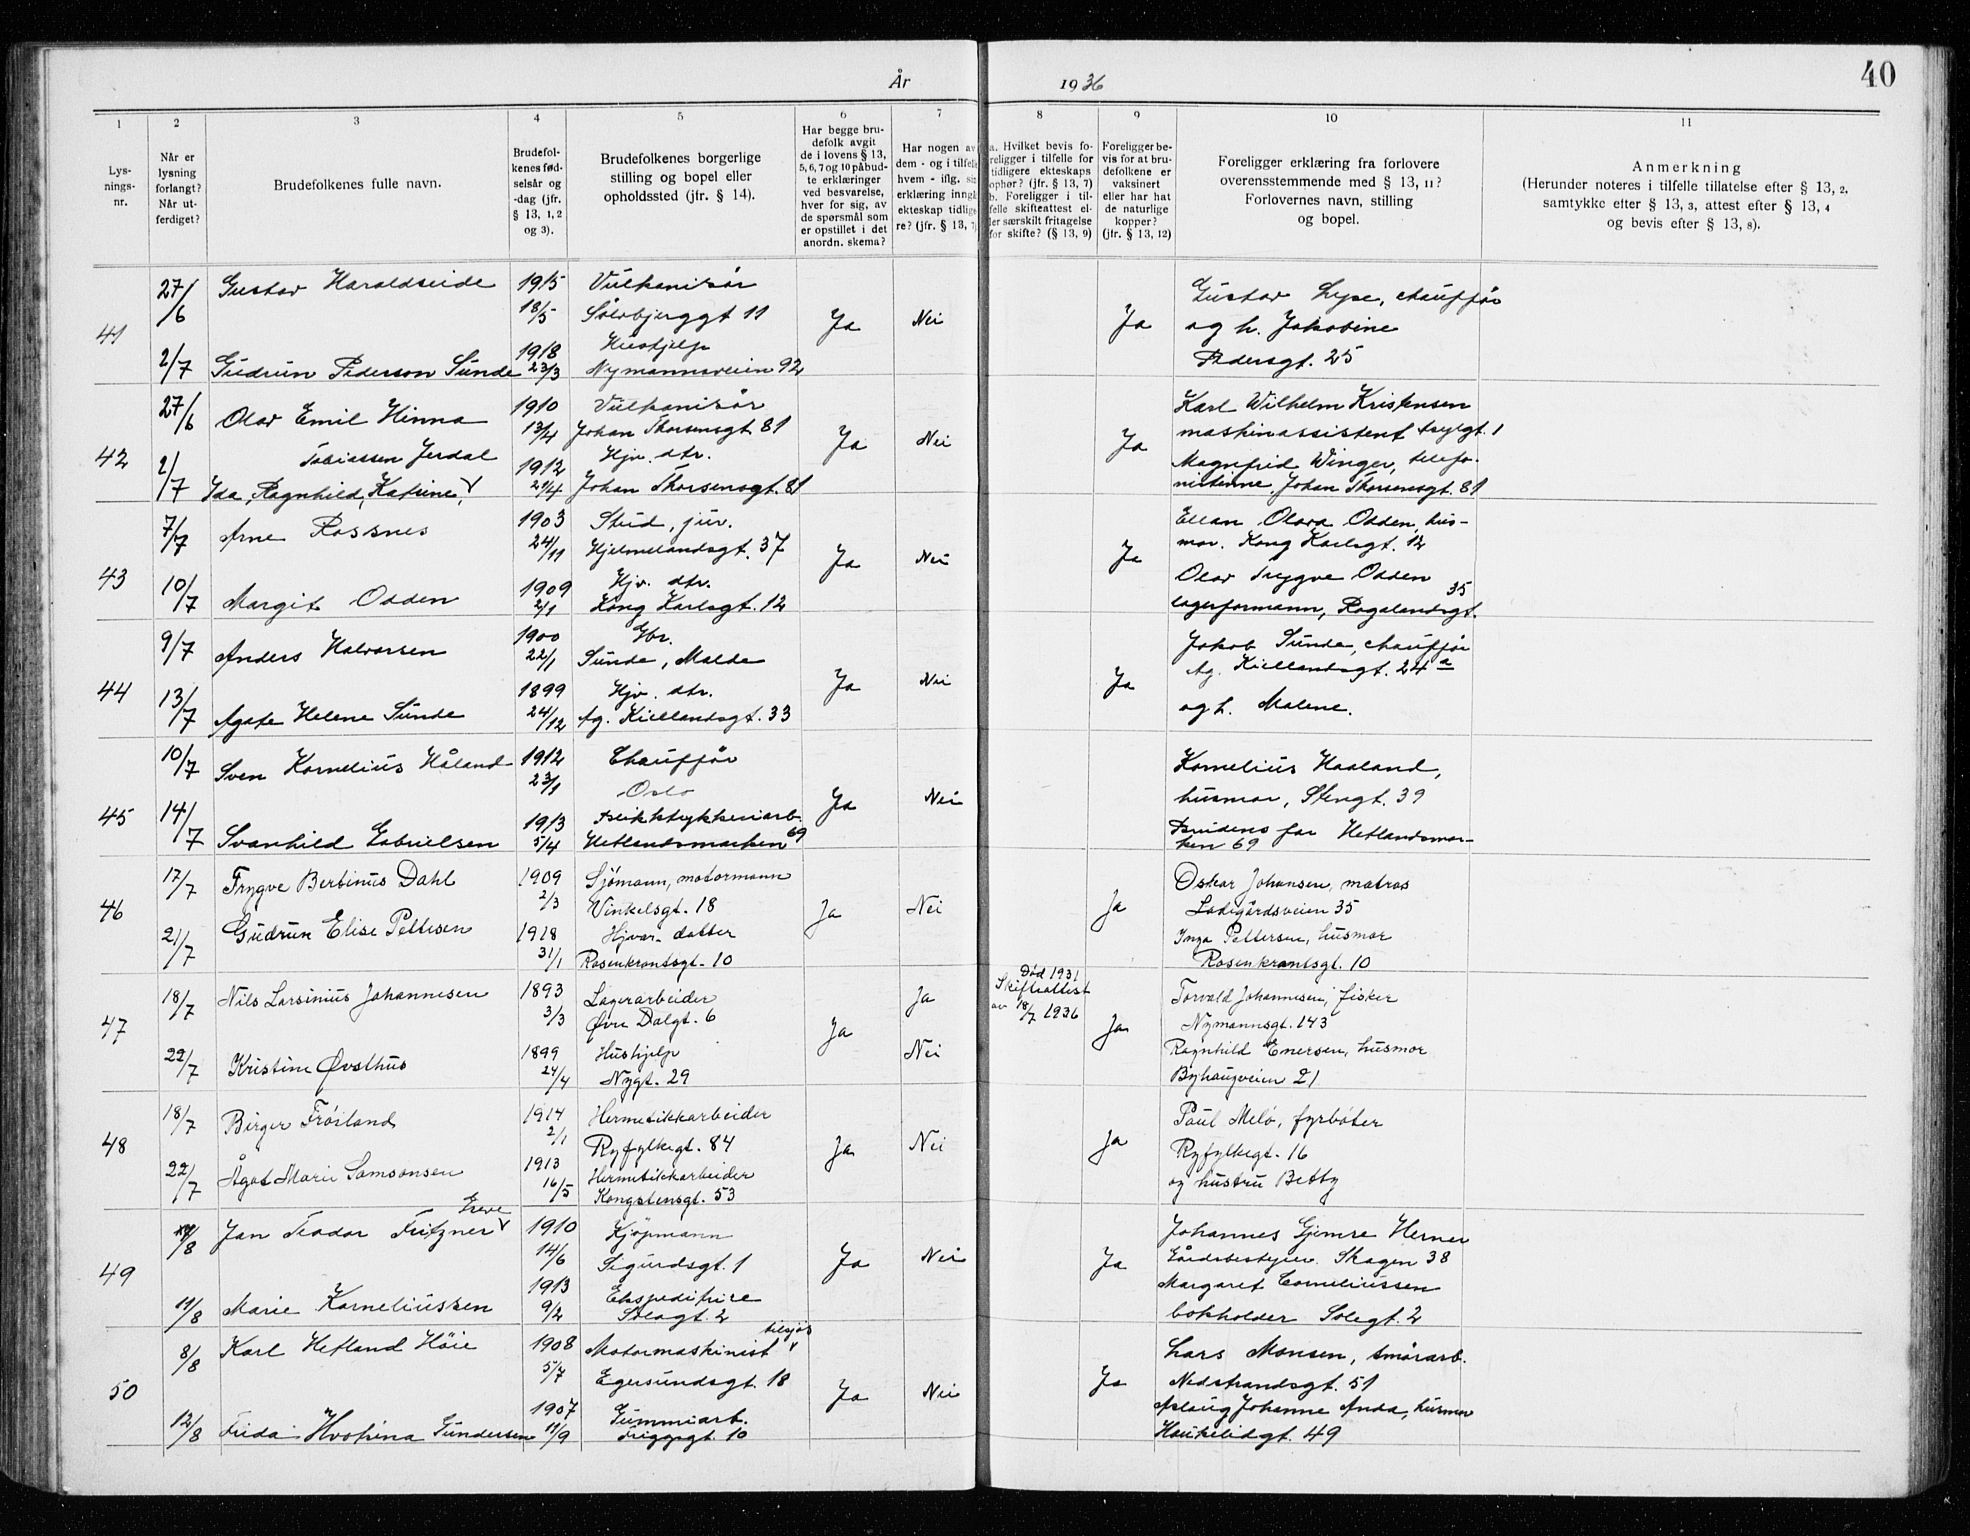 År 1936
40
1 2 3 4 5 6 7 8 9 10 11
Lysnings-nr.
Når er lysning forlangt? Når utferdiget?
Brudefolkenes fulle navn.
Brudefolkenes fødselsår og -dag (jfr. § 13, 1, 2 og 3).
Brudefolkenes borgerlige stilling og bopel eller opholdssted (jfr. § 14).
Har begge brudefolk avgit de i lovens § 13, 5, 6, 7 og 10 påbudte erklæringer ved besvarelse, hver for sig, av de spørsmål som er opstillet i det anordn. skema?
Har nogen av dem - og i tilfelle hvem - iflg. sin erklæring inngått ekteskap tidligere? (jfr. § 13, 7)
a. Hvilket bevis foreligger i tilfelle for tidligere ekteskaps ophør? (jfr. § 13, 7)
b. Foreligger i tilfelle skifteattest eller særskilt fritagelse for skifte? (§ 13, 9)
Foreligger bevis for at brudefolkene er vaksinert eller har hat de naturlige kopper? (jfr. § 13, 12)
Foreligger erklæring fra forlovere overensstemmende med § 13, 11? Forlovernes navn, stilling og bopel.
Anmerkning
(Herunder noteres i tilfelle tillatelse efter § 13, 2, samtykke efter § 13, 3, attest efter § 13, 4 og bevis efter § 13, 8).
41
27/6 Gustav Haraldseide 1915 Vulkanisør Gustav Lyse, chauffør
18/5 Sølvbjerggt 11 Ja Nei Ja og h. Jakobine
2/7 Gudrun Pederson Sunde 1918 Hushjelp Pedersgt. 25
23/3 Nymannsveien 92
42
27/6 Olav Emil Hinna 1910 Vulkanisør Karl Wilhelm Kristensen
13/4 Johan Thorsensgt. 81 Ja Nei Ja maskinassistent 1
Tobiassen Jerdal 1912 Hjv. dtr. Magnfrid Winger, telefo-
2/7 Ida, Ragnhild, Katrine, v 21/4 Johan Thorsensgt. 81 nistinne, Johan Thorsensgt. 81
43
7/7 Arne Rossnes 1903 Stud, jur. Olava Odden, hus-
24/11 Hjelmelandsgt. 37 Ja Nei Ja mor. Kong Karlsgt. 12
10/7 Margit Odden 1909 Hjv. dtr. Olav Trygve Odden
2/1 Kong Karlsgt. 12 lagerformann, Rogalandsgt. 35
44
9/7 Anders Halvorsen 1900 Gbr. Jakob Sunde, chauffør
22/1 Sunde, Malde Ja Nei Ja Ag. Kiellandsgt. 24 a
13/7 Agate Helene Sunde 1899 Hjv. dtr. og h. Malene.
24/12 Ag. Kiellandsgt. 33
45
10/7 Sven Kornelius Håland 1912 Chauffør Kornelius Haaland,
23/1 Oslo Ja Nei husmor, Stengt. 39
14/7 Svanhild Gabrielsen 1913 Brudens far Hetlandsmar-
5/4 Hetlandsmarken 69 ken 69
46
17/7 Trygve Bertinus Dahl 1909 Sjømann, motormann Oskar Johansen, matros
2/3 Vinkelsgt. 18 Ja Nei Ja Ladegårdsveien 35
21/7 Gudrun Elise Pettersen 1918 Hjvær. datter Inga Pettersen, husmor
31/1 Rosenkrantsgt. 10 Rosenkrantsgt. 10
47
18/7 Nils Larsinius Johannesen 1893 Lagerarbeider Ja Død 1931 Torvald Johannesen, fisker
3/3 Øvre Dalgt. 6 Ja Skifteattest av 18/7 1936 Ja Nymannsgt. 143
22/7 Kristine Øvsthus 1899 Hushjelp Nei Ragnhild Enersen, husmor
24/4 Nygt. 29 Byhaugveien 21
48
18/7 Birger Frøiland 1914 Hermetikkarbeider Paul Melø, fyrbøter
2/1 Ryfylkegt. 84 Ja Nei Ja Ryfylkegt. 16
22/7 Ågot Marie Samsonsen 1913 Hermetikkarbeider og hustru Betty
16/5 Kongstensgt. 53
49
/8 Jan Teodor Fritzner v Greve 1910 Kjøpmann Johannes Gjemre Herner
14/6 Sigurdsgt. 1 Ja Nei Ja Gårdbestyrer. Skagen 38
11/8 Marie Korneliussen 1913 Ekspeditrise Margaret Corneliussen
9/2 Solagt. 2 bokholder Solagt. 2
50
8/8 Karl Hetland Høie 1908 Motormaskinist v tilsjøs Lars Monsen, smørarb.
5/7 Egersundsgt. 18 Ja Nei Ja Nedstrandsgt. 51
12/8 Frida Gundersen 1907 Gummiarb. Aslaug Johanne Anda, husmor
11/9 Friggsgt. 10 Haukelidgt. 49